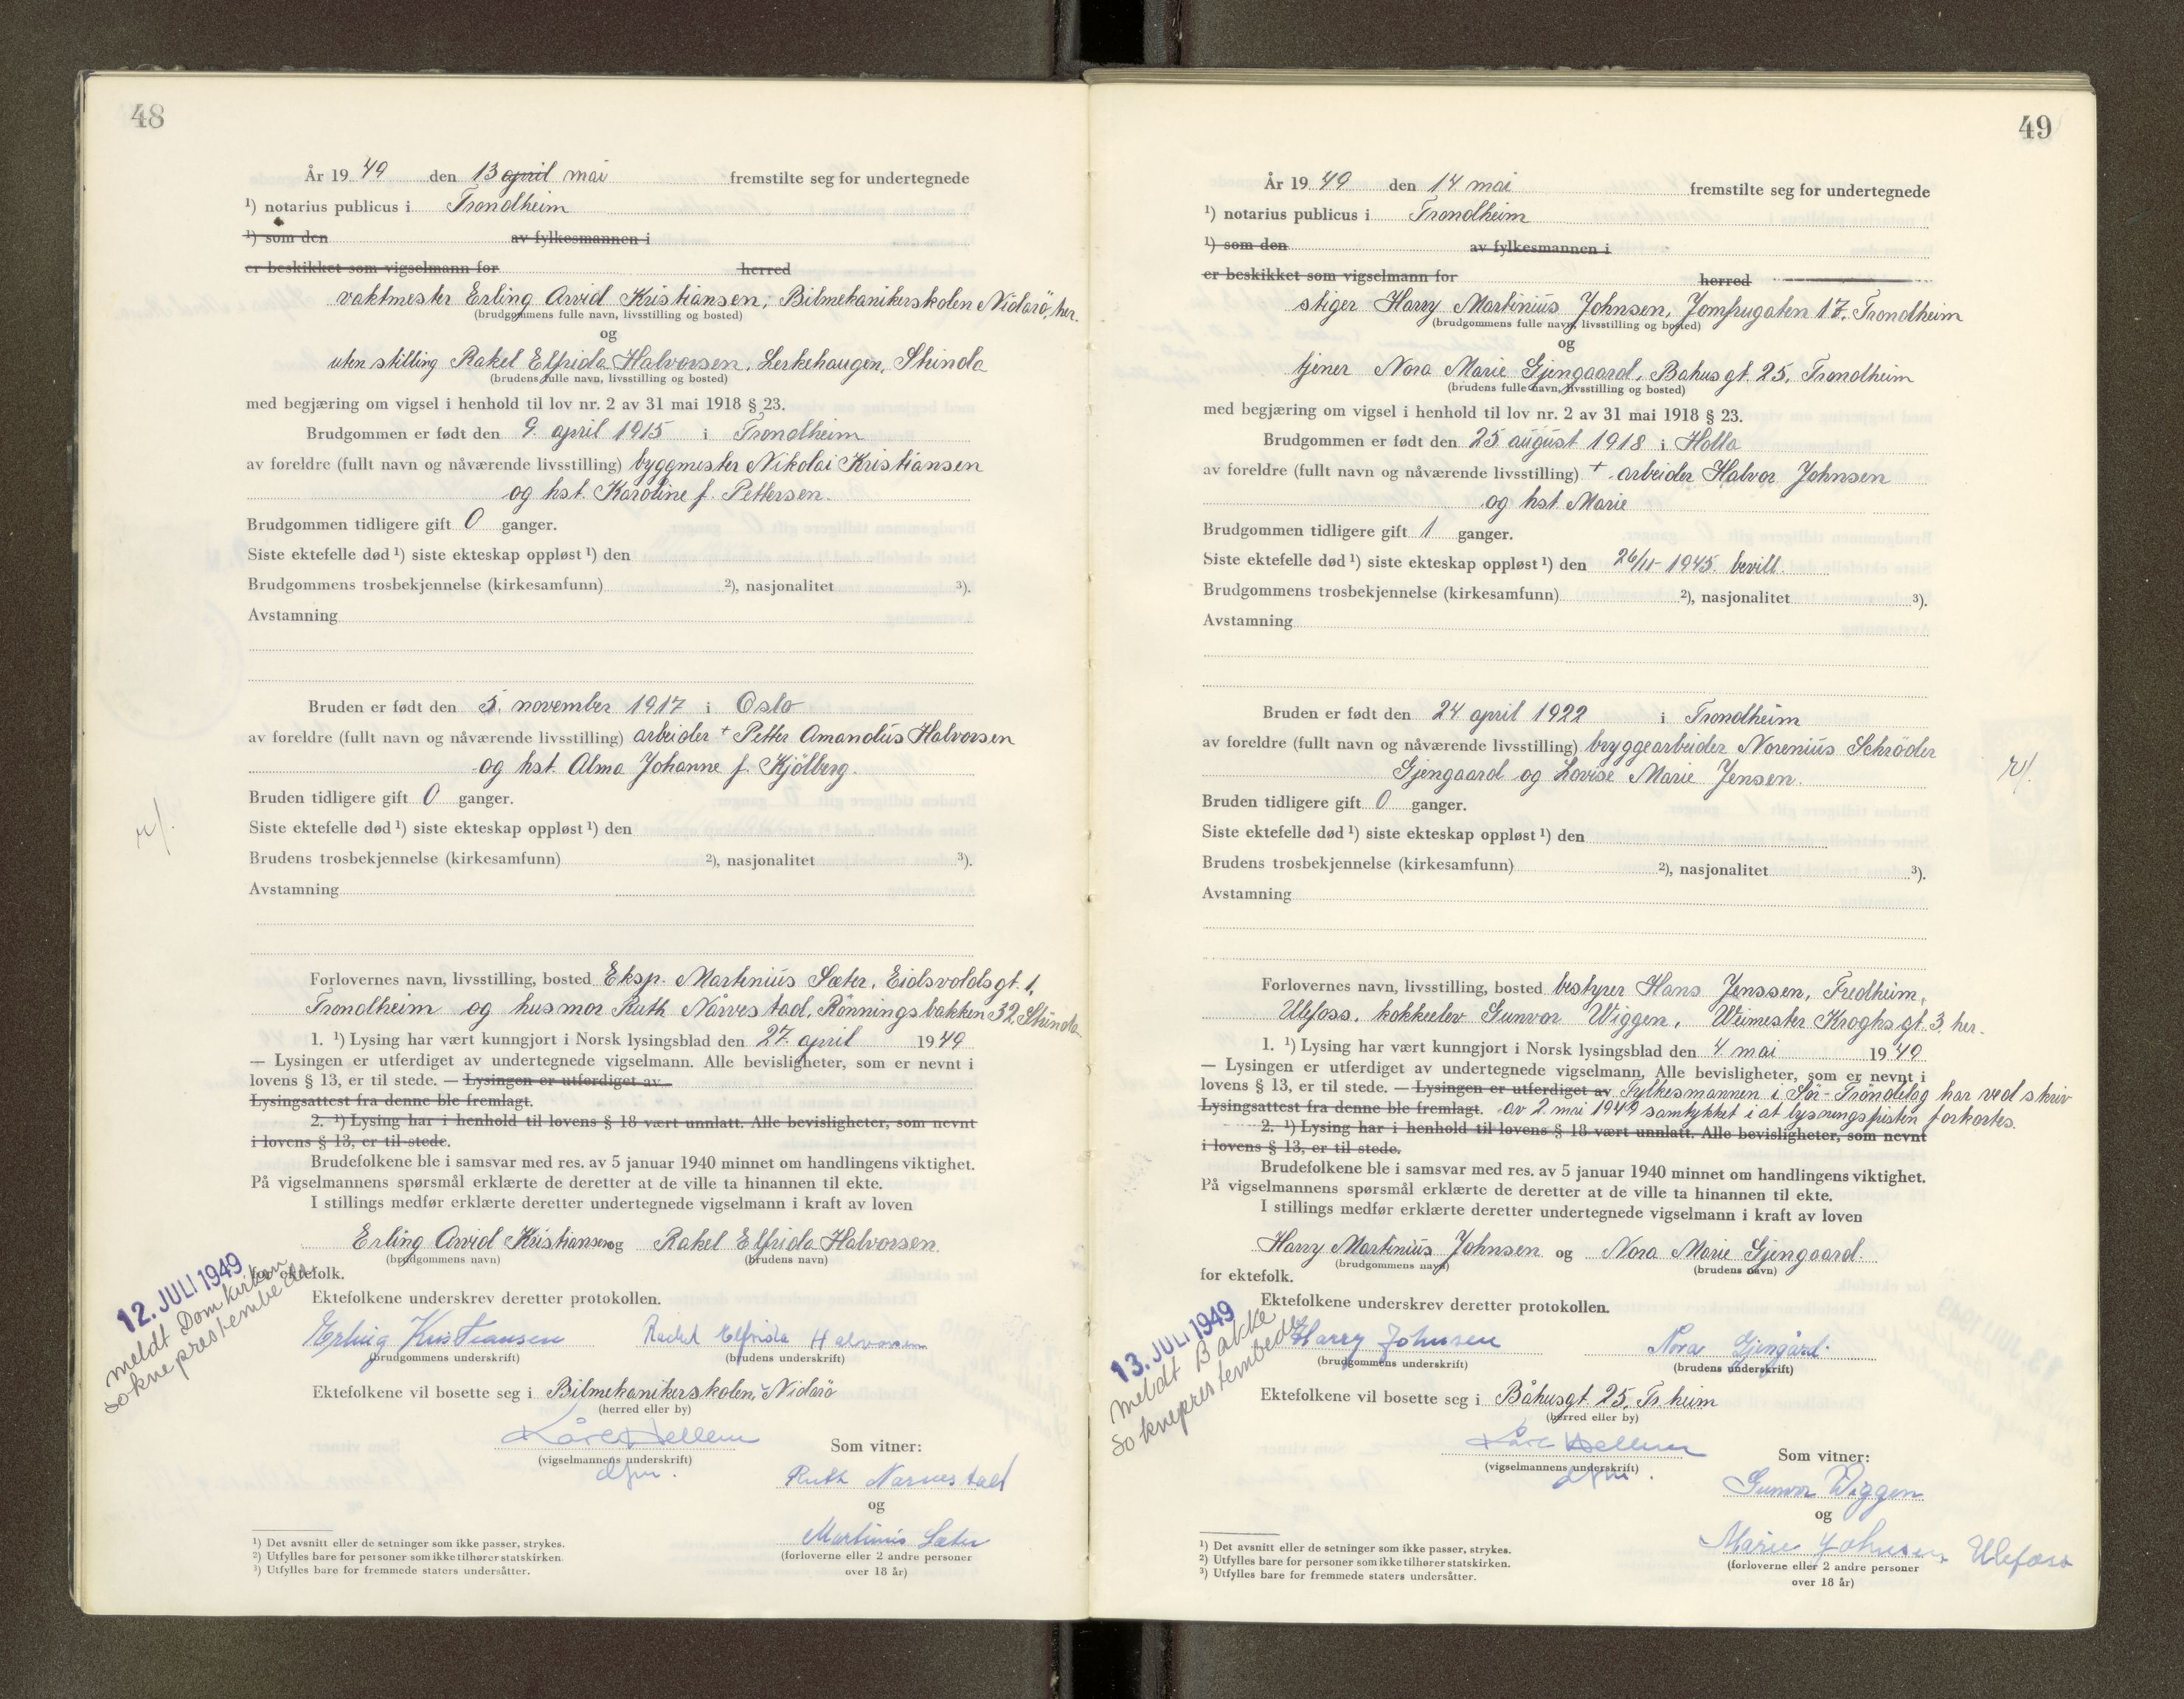 48
År 19 49 den 13 april mai fremstilte seg for undertegnede
¹) notarius publicus i Trondheim
¹) som den av fylkesmannen i
er beskikket som vigselmann for herred
vaktmester Erling Arvid Kristiansen, Bilmekanikerskolen Nidarö, her.
(brudgommens fulle navn, livsstilling og bosted)
og
uten stilling Rakel Elfrida Halvorsen, Lerkehaugen, Strinda
(brudens fulle navn, livsstilling og bosted)
med begjæring om vigsel i henhold til lov nr. 2 av 31 mai 1918 § 23.
Brudgommen er født den 9. april 1915 i Trondheim
av foreldre (fullt navn og nåværende livsstilling) byggmester Nikolai Kristiansen
og hst. Karoline f. Pettersen.
Brudgommen tidligere gift 0 ganger.
Siste ektefelle død ¹) siste ekteskap oppløst ¹) den
Brudgommens trosbekjennelse (kirkesamfunn) ²), nasjonalitet ³).
Avstamning
Bruden er født den 5. november 1917 i Oslo
av foreldre (fullt navn og nåværende livsstilling) arbeider + Petter Amandus Halvorsen
og hst. Alma Johanne f. Kjölberg.
Bruden tidligere gift 0 ganger.
Siste ektefelle død ¹) siste ekteskap oppløst ¹) den
Brudens trosbekjennelse (kirkesamfunn) ²), nasjonalitet ³).
Avstamning
Forlovernes navn, livsstilling, bosted Eksp. Martinius Sæter, Eidsvoldsgt. 1,
Trondheim og husmor Ruth Närvestad, Rönningsbakken 32, Strinda
1. ¹) Lysing har vært kunngjort i Norsk lysingsblad den 27. april 19 49
— Lysingen er utferdiget av undertegnede vigselmann. Alle bevisligheter, som er nevnt i
lovens § 13, er til stede. — Lysingen er utferdiget av
Lysingsattest fra denne ble fremlagt.
2. ¹) Lysing har i henhold til lovens § 18 vært unnlatt. Alle bevisligheter, som nevnt
i lovens § 13, er til stede.
Brudefolkene ble i samsvar med res. av 5 januar 1940 minnet om handlingens viktighet.
På vigselmannens spørsmål erklærte de deretter at de ville ta hinannen til ekte.
I stillings medfør erklærte deretter undertegnede vigselmann i kraft av loven
Erling Arvid Kristiansen og Rakel Elfrida Halvorsen.
(brudgommens navn) (brudens navn)
for ektefolk.
12. JULI 1949
meldt Domkirken
sokneprestembede
Ektefolkene underskrev deretter protokollen.
Erling Kristiansen Rackel Elfrida Halvorsen
(brudgommens underskrift) (brudens underskrift)
Ektefolkene vil bosette seg i Bilmekanikerskolen, Nidarö
(herred eller by)
Kåre Hellem
(vigselmannens underskrift)
Som vitner:
Ruth Narvestad
og
Martinius Sæter
(forloverne eller 2 andre personer
over 18 år)
¹) Det avsnitt eller de setninger som ikke passer, strykes.
²) Utfylles bare for personer som ikke tilhører statskirken.
³) Utfylles bare for fremmede staters undersåtter.
49
År 19 49 den 14 mai fremstilte seg for undertegnede
¹) notarius publicus i Trondheim
¹) som den av fylkesmannen i
er beskikket som vigselmann for herred
stiger Harry Martinius Johnsen, Jomfrugaten 17, Trondheim
(brudgommens fulle navn, livsstilling og bosted)
og
tjener Nora Marie Gjengaard, Bahusgt. 25, Trondheim
(brudens fulle navn, livsstilling og bosted)
med begjæring om vigsel i henhold til lov nr. 2 av 31 mai 1918 § 23.
Brudgommen er født den 25 august 1918 i Holla
av foreldre (fullt navn og nåværende livsstilling) + arbeider Halvor Johnsen
og hst. Marie
Brudgommen tidligere gift 1 ganger.
Siste ektefelle død ¹) siste ekteskap oppløst ¹) den 26/11-1945. bevill.
Brudgommens trosbekjennelse (kirkesamfunn) ²), nasjonalitet ³).
Avstamning
Bruden er født den 24 april 1922 i Trondheim
av foreldre (fullt navn og nåværende livsstilling) bryggearbeider Norenius Schröder
Gjengaard og Lovise Marie Jensen.
Bruden tidligere gift 0 ganger.
Siste ektefelle død ¹) siste ekteskap oppløst ¹) den
Brudens trosbekjennelse (kirkesamfunn) ²), nasjonalitet ³).
Avstamning
Forlovernes navn, livsstilling, bosted bestyrer Hans Jenssen, Fredheim,
Ulefoss, kokkeelev Gunvor Wiggen, Veimester Kroghsgt. 3, her.
1. ¹) Lysing har vært kunngjort i Norsk lysingsblad den 4. mai 19 49
— Lysingen er utferdiget av undertegnede vigselmann. Alle bevisligheter, som er nevnt i
lovens § 13, er til stede. — Lysingen er utferdiget av Fylkesmannen i Sör-Tröndelag har ved skriv
Lysingsattest fra denne ble fremlagt. av 2 mai 1949 samtykket i at lysningsfristen forkortes.
2. ¹) Lysing har i henhold til lovens § 18 vært unnlatt. Alle bevisligheter, som nevnt
i lovens § 13, er til stede.
Brudefolkene ble i samsvar med res. av 5 januar 1940 minnet om handlingens viktighet.
På vigselmannens spørsmål erklærte de deretter at de ville ta hinannen til ekte.
I stillings medfør erklærte deretter undertegnede vigselmann i kraft av loven
Harry Martinius Johnsen og Nora Marie Gjengaard.
(brudgommens navn) (brudens navn)
for ektefolk.
13. JULI 1949
meldt Bakke
sokneprestembede
Ektefolkene underskrev deretter protokollen.
Harry Johnsen Nora Gjengård.
(brudgommens underskrift) (brudens underskrift)
Ektefolkene vil bosette seg i Båhusgt. 25, Tr.heim
(herred eller by)
Kåre Hellem
(vigselmannens underskrift)
Som vitner:
Gunvor Wiggen
og
Marie Johnsen, Ulefoss
(forloverne eller 2 andre personer
over 18 år)
¹) Det avsnitt eller de setninger som ikke passer, strykes.
²) Utfylles bare for personer som ikke tilhører statskirken.
³) Utfylles bare for fremmede staters undersåtter.